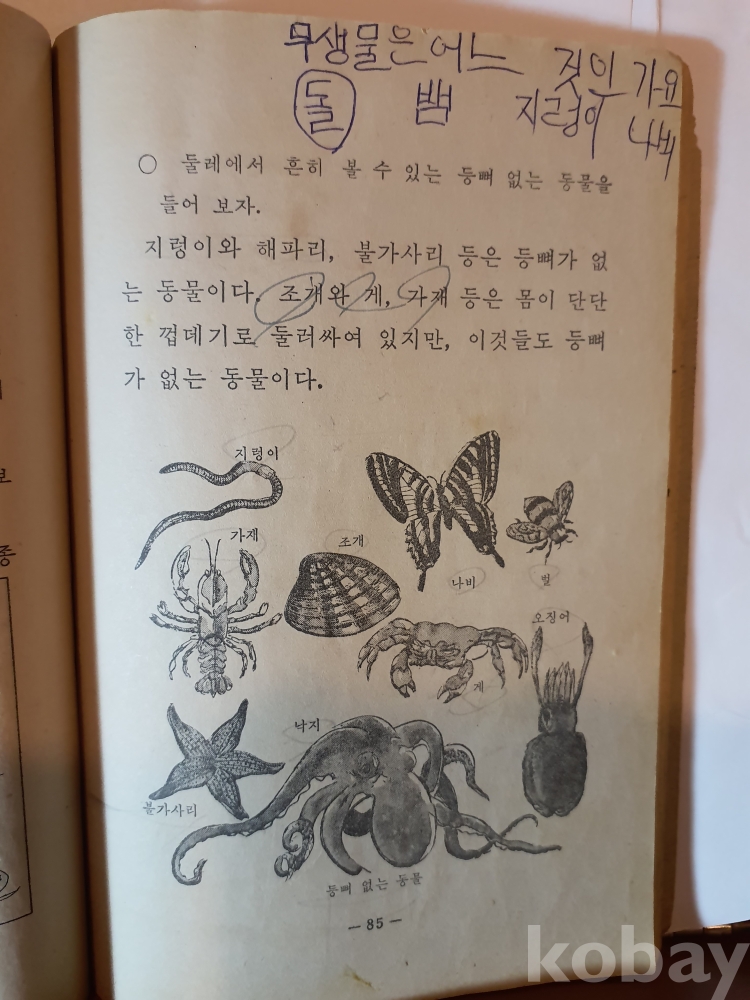 무생물은 어느 것인가요
돌 뱀 지렁이 나비
○ 둘레에서 흔히 볼 수 있는 등뼈 없는 동물을
들어 보자.
지렁이와 해파리, 불가사리 등은 등뼈가 없
는 동물이다. 조개와 게, 가재 등은 몸이 단단
한 껍데기로 둘러싸여 있지만, 이것들도 등뼈
가 없는 동물이다.
지렁이
가재
조개
나비
벌
오징어
게
낙지
불가사리
등뼈 없는 동물
—85—
보
종
kobay